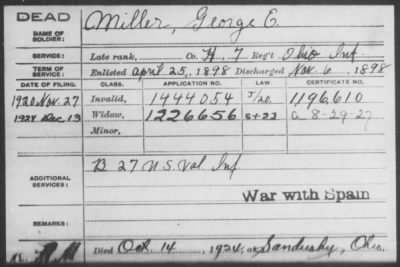 DEAD
NAME OF SOLDIER: Miller, George E.
SERVICE: Late rank, Co. H, 7 Reg't Ohio Inf.
TERM OF SERVICE: Enlisted April 25, 1898 Discharged Nov. 6, 1898
DATE OF FILING. CLASS. APPLICATION NO. LAW. CERTIFICATE NO.
1920 Nov. 27 Invalid, 1444054 J/20. 1196610
1924 Dec. 13 Widow, 1226656 S+22 a 8-29-27
Minor,
ADDITIONAL SERVICES: B 27 U.S. Vol. Inf
War with Spain
REMARKS:
Died Oct. 14, 1924, at Sandusky, Ohio.